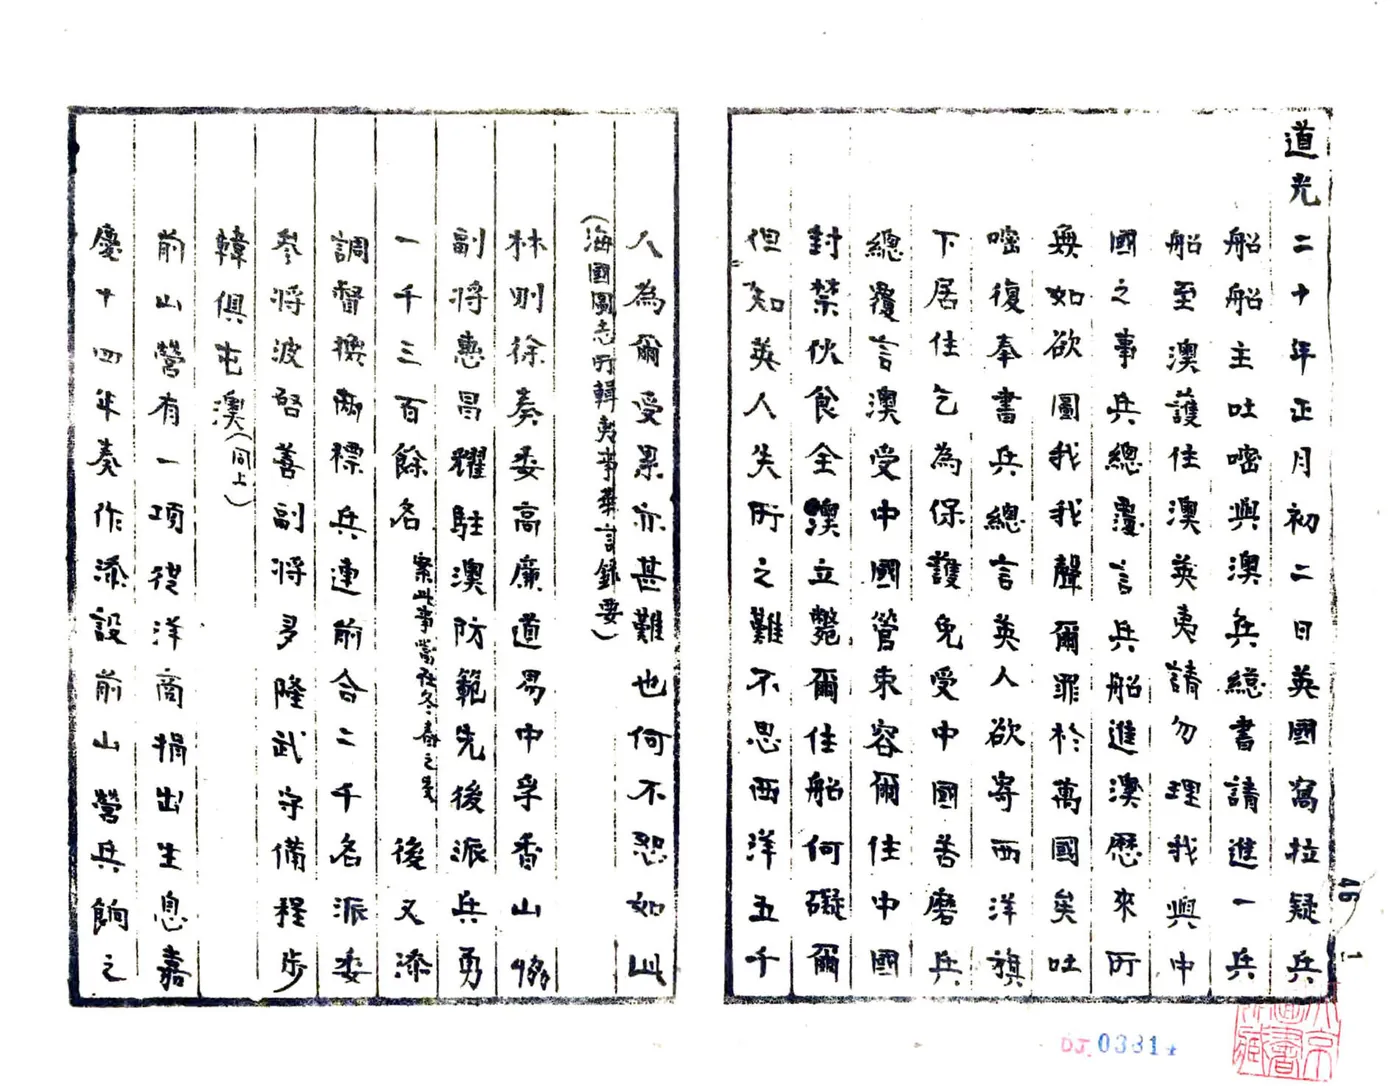 道光二十年正月初二日英國窩拉疑兵
船船主吐嘧與澳兵總書請進一兵
船至澳護住澳英夷請勿理我與中
國之事兵總覆言兵船進澳歷來所
無如欲圖我我聲爾罪於萬國矣吐
嘧復奉書兵總言英人欲寄西洋旗
下居住乞為保護免受中國善磨兵
總覆言澳受中國管束容爾住中國
封禁伙食全澳立斃爾住船何礙爾
但知英人失所之難不思西洋五千
人為爾受累亦甚難也何不恕如此
(海國圖志所輯夷事華言錄要)
林則徐奏委高廉道易中孚香山協
副將惠昌耀駐澳防範先後派兵勇
一千三百餘名 案此事當在冬春之 後又添
調督撫兩標兵連前合二千名派委
參將波啓善副將多隆武守備程步
韓俱屯澳(同上)
前山營有一項從洋商捐出生息嘉
慶十四年奏作添設前山營兵餉之
46
1
DJ 03814